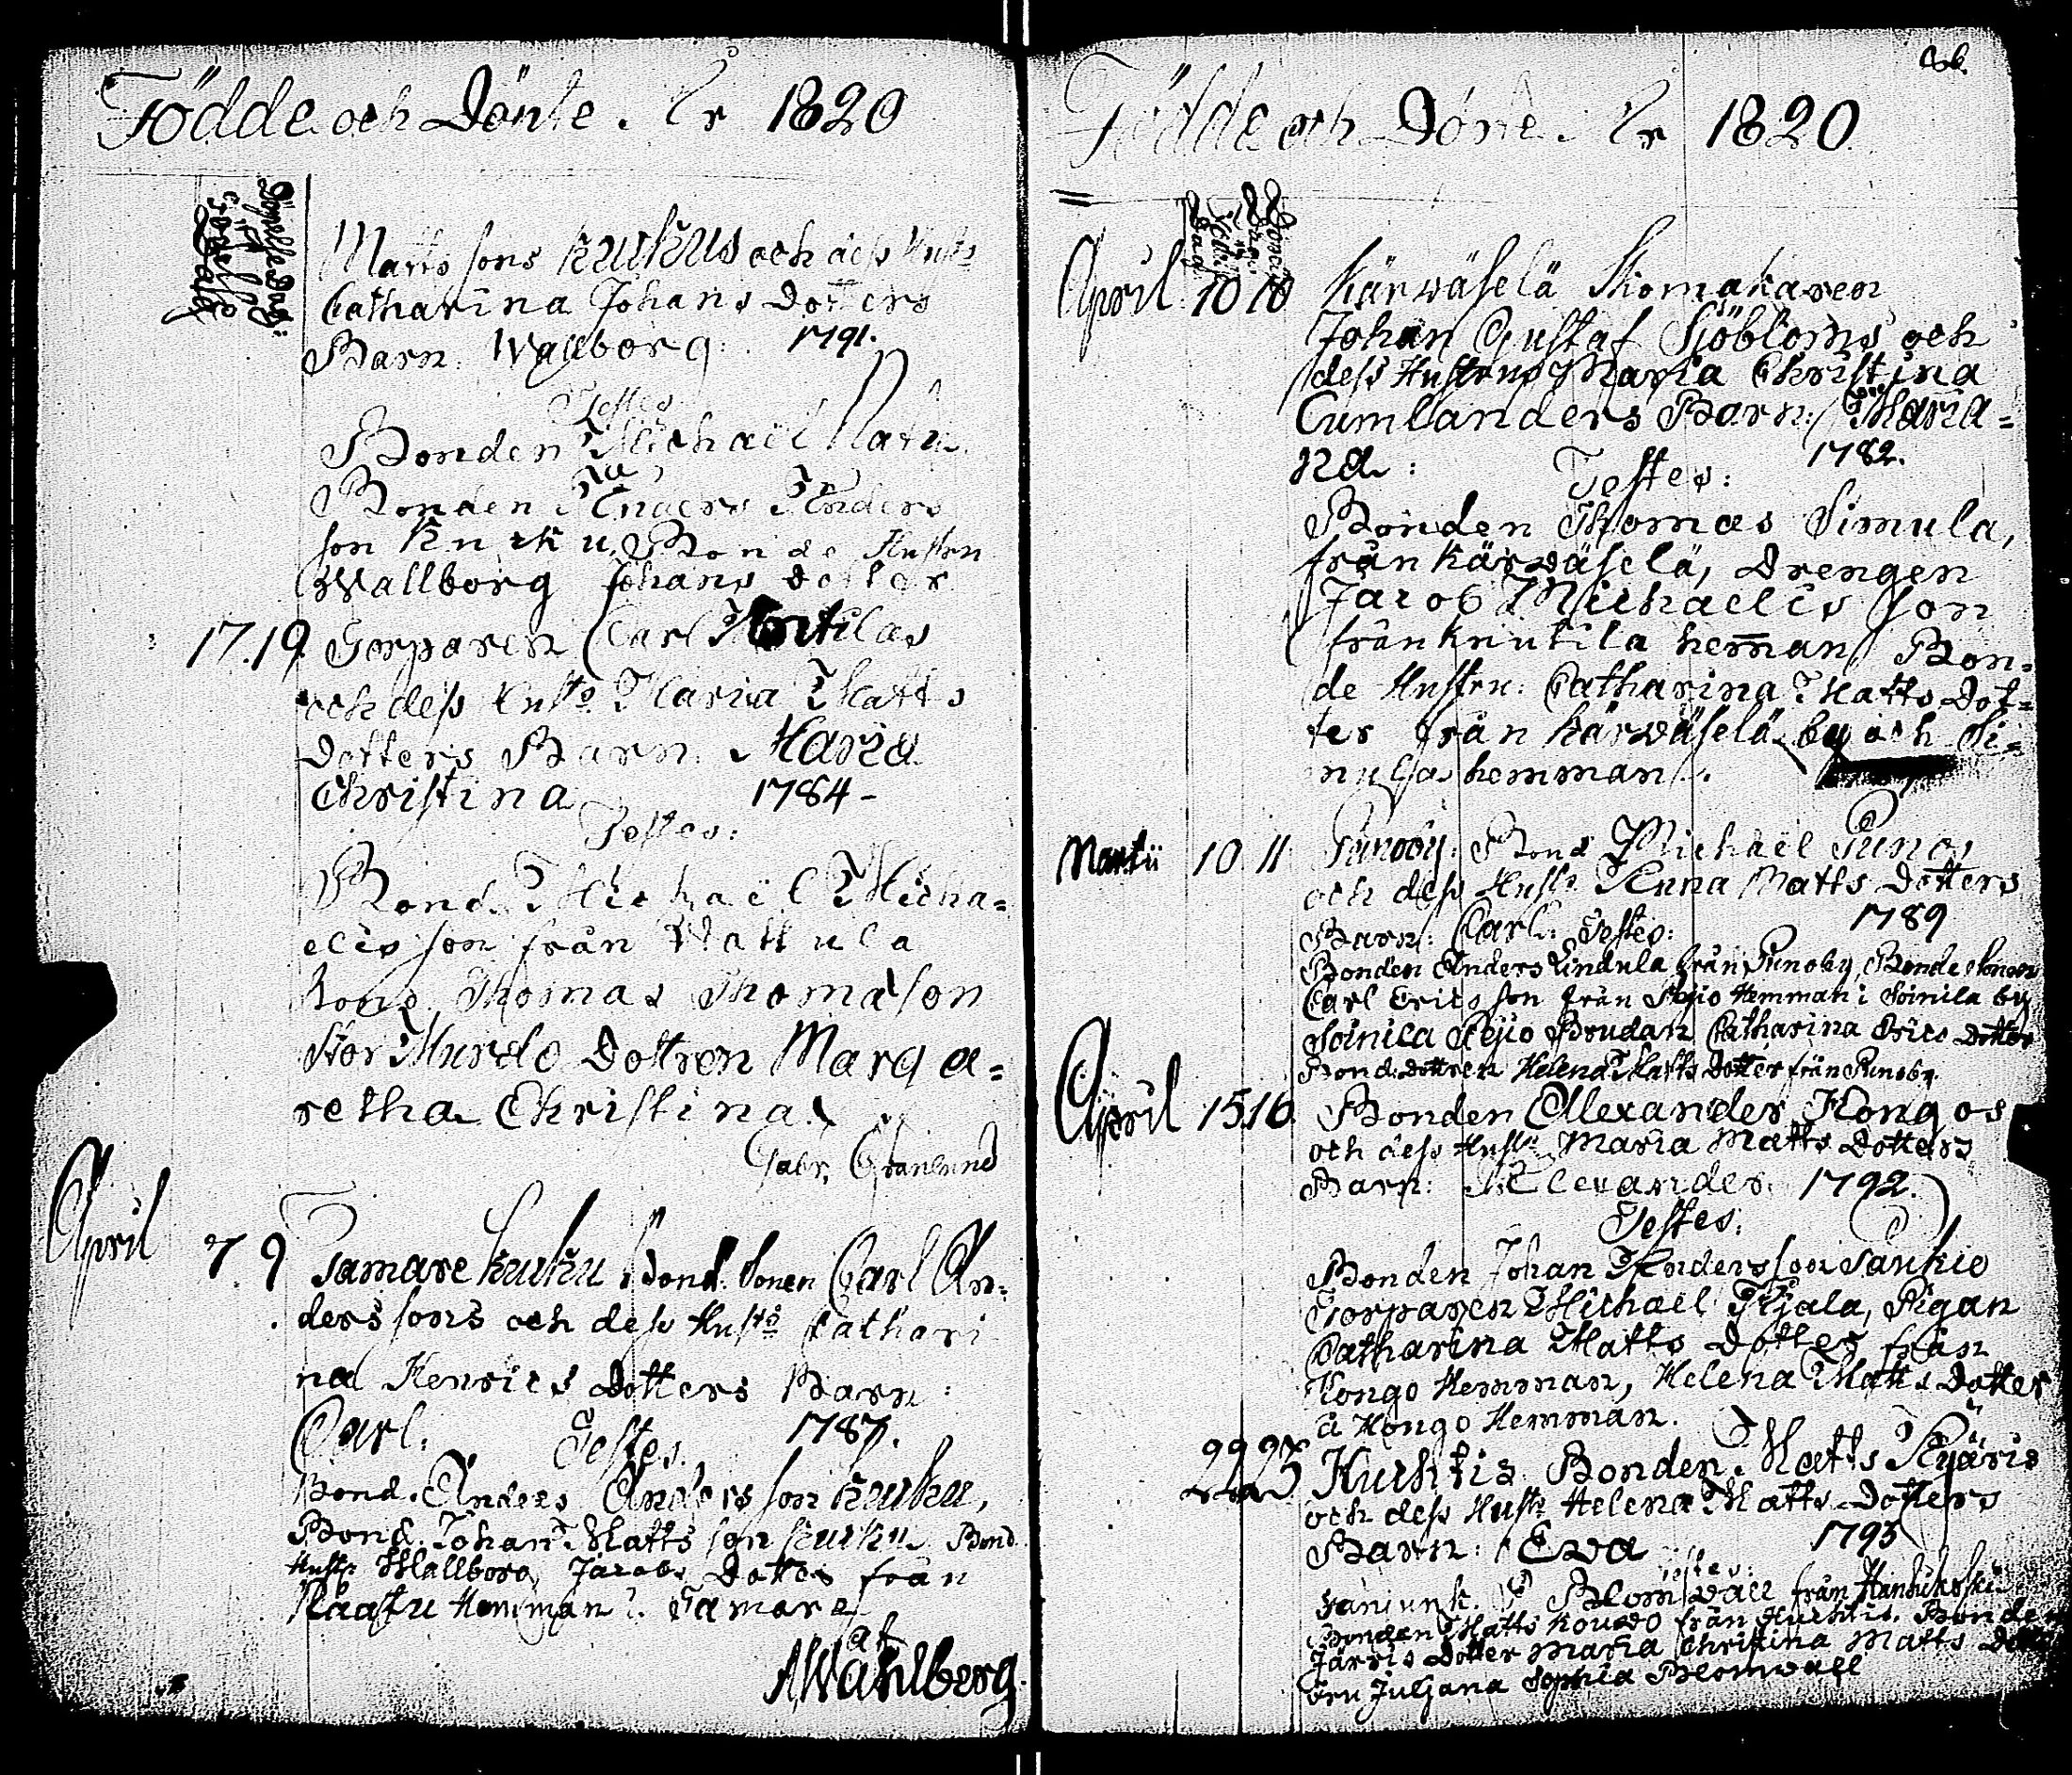 Födde och Dönte År 1820
Födelse Dag
Matts sons Kurkus och dess Hust:
Catharina Johans Dotters
Barn: Wallborg: 1791.
Testes
Bonden Michaël
Bonden Anders Anders
son Kurku, Bonde Hustru
Wallborg Johans dotter
17.19. Torparen Carl Anttilas
och dess Hust: Maria Matts
Dotters Barn: Maria
Christina 1784 -
Testes:
Bond. Michaël Micha=
elis son från Wattula
Bond. Thomas Thomasson
Stor Murdo Dottren Marga=
retha Christina.
Gabr. Granlund
April 7. 9 Tamare Kurku Bond. Sonen Carl An=
ders sons och dess Hust: Cathari
na Henrics Dotters Barn:
Carl. Testes. 1787.
Bond. Anders Anders son Kurku,
Bond. Johan Matts son Kurku Bond.
Hustr Wallborg Jacobs Dotter från
Hemman i Tamare
af
AWahlberg.
Födde och Dönte År 1820
April 10 10 Kärwäselä Skomakaren
Johan Gustaf Sjöbloms och
dess Hustrus Maria Christina
Cumlanders Barn: Maria=
na: Testes: 1782.
Bonden Thomas Simula,
från Kärwäselä, Drengen
Jacob Michaelis son
från Knutila hem̄an Bon=
de Hustru: Catharina Matts Dot=
ter från Kärwäselä by och Si=
mula hemman.
Martii 10. 11 Punoby: Bond Michaël Punos
och dess Hust: Anna Matts Dotters
Barn: Carl: Testes: 1789
Bonden Anders Lindula från Punoby, Bonde Sonen
Carl Erics son från Äijio Hemman i Soinila by
Soinila Äijio Brudan Catharina Erics Dotter
Bond: Dottren Helena Matts Dotter från Punoby.
April 15.16. Bonden Alexander Hongos
och dess Hust: Maria Matts Dotters
Barn: Alexander. 1792.
Testes:
Bonden Johan Anders son Sankio
Torparen Michael Ajala, Pigan
Catharina Matts Dotter från
Hongo Hemman, Helena Matts Dotter
å Hongo Hemman.
22 25 Hurhtis Bonden Matts Äijäris
och dess Hust: Helena Matts Dotters
Barn: Ewa 1793
Testes:
Blomwall från
Bonden Matts Kouwo från Hurhtis. Bonden
Järris Dotter Maria Christina Matts
Juljana Sophia Blomwall